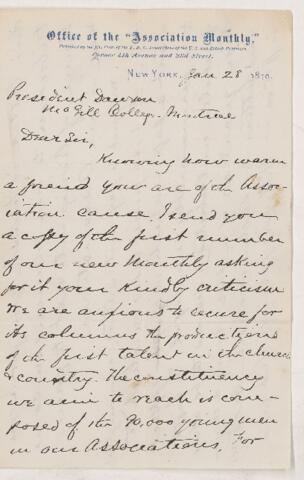 Office of the "Association Monthly,"
Corner 4th Avenue and 23d Street.
NEW YORK, Jan 28 1870.
President Dawson
McGill College. Montreal
Dear Sir,
Knowing how warm
a friend you are of the Assoc-
iation cause, I send you
a copy of the first number
of our new Monthly asking
for it your kindly criticism
We are anxious to secure for
its columns the productions
of the first talent in the church
& country. The constituency
we aim to reach is com-
posed of the 90,000 young men
in our Associations. For